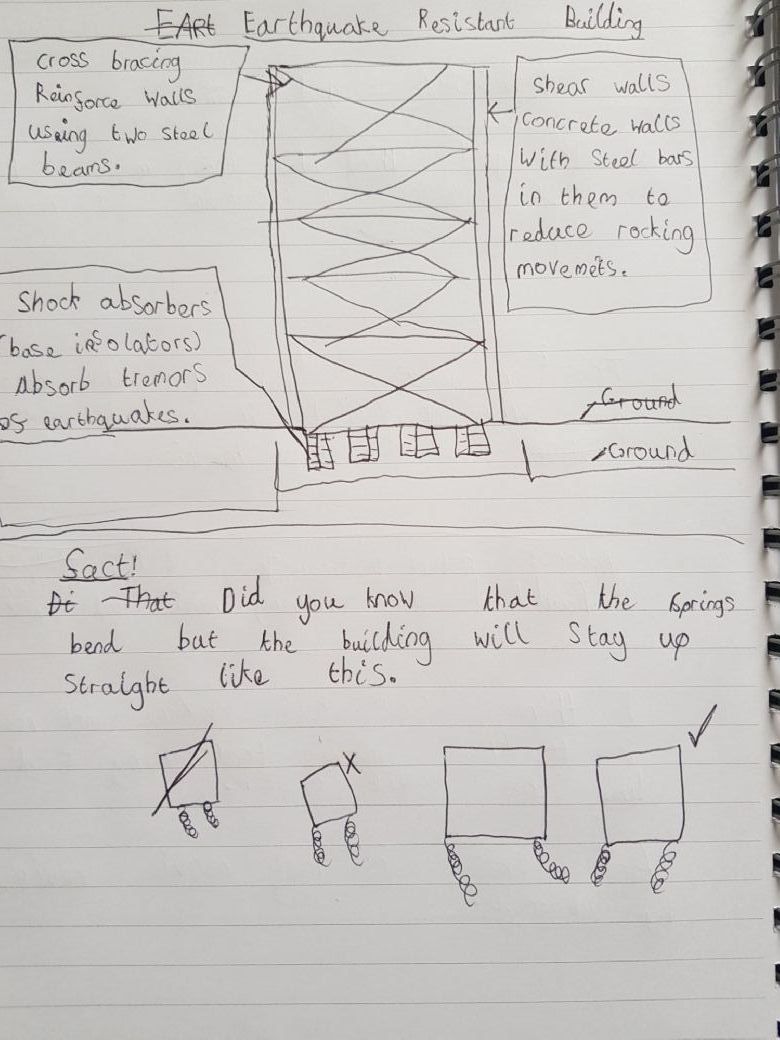 EArt Earthquake Resistant Building
Cross bracing
Reinforce walls
using two steel
beams.
shear walls
concrete walls
with steel bars
in them to
reduce rocking
movemets.
Shock absorbers
(base isolators)
Absorb tremors
of earthquakes.
Ground
Ground
Fact!
Di That Did you know that the springs
bend but the building will stay up
straight like this.